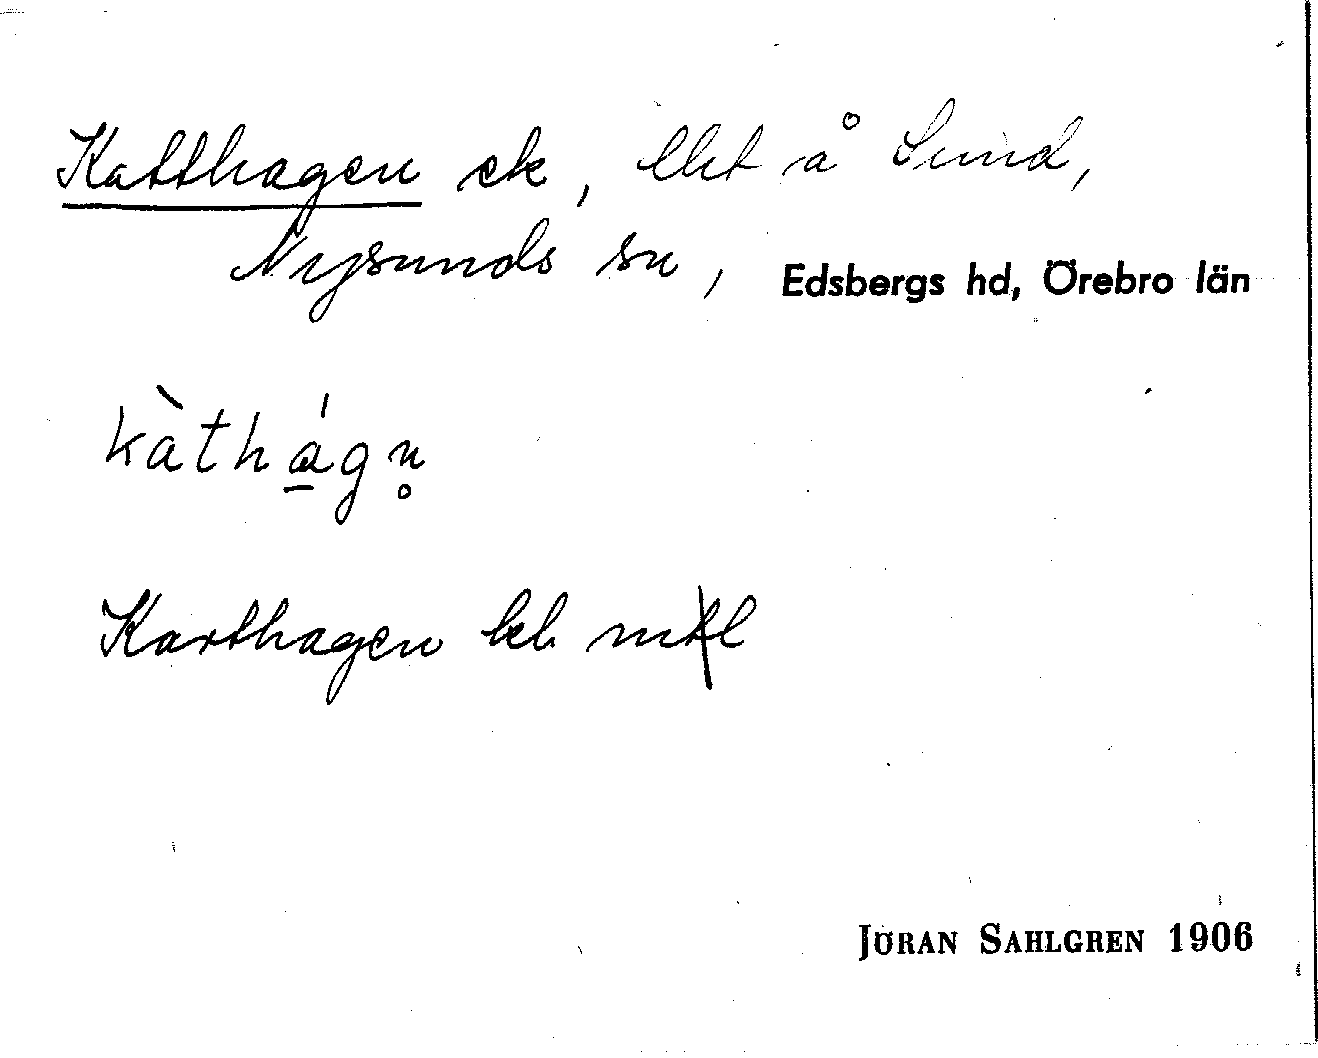 Katthagen ek, lht å Sund,
Nysunds sn, Edsbergs hd, Örebro län
kàthág̥n
Karthagen kb
JÖRAN SAHLGREN 1906